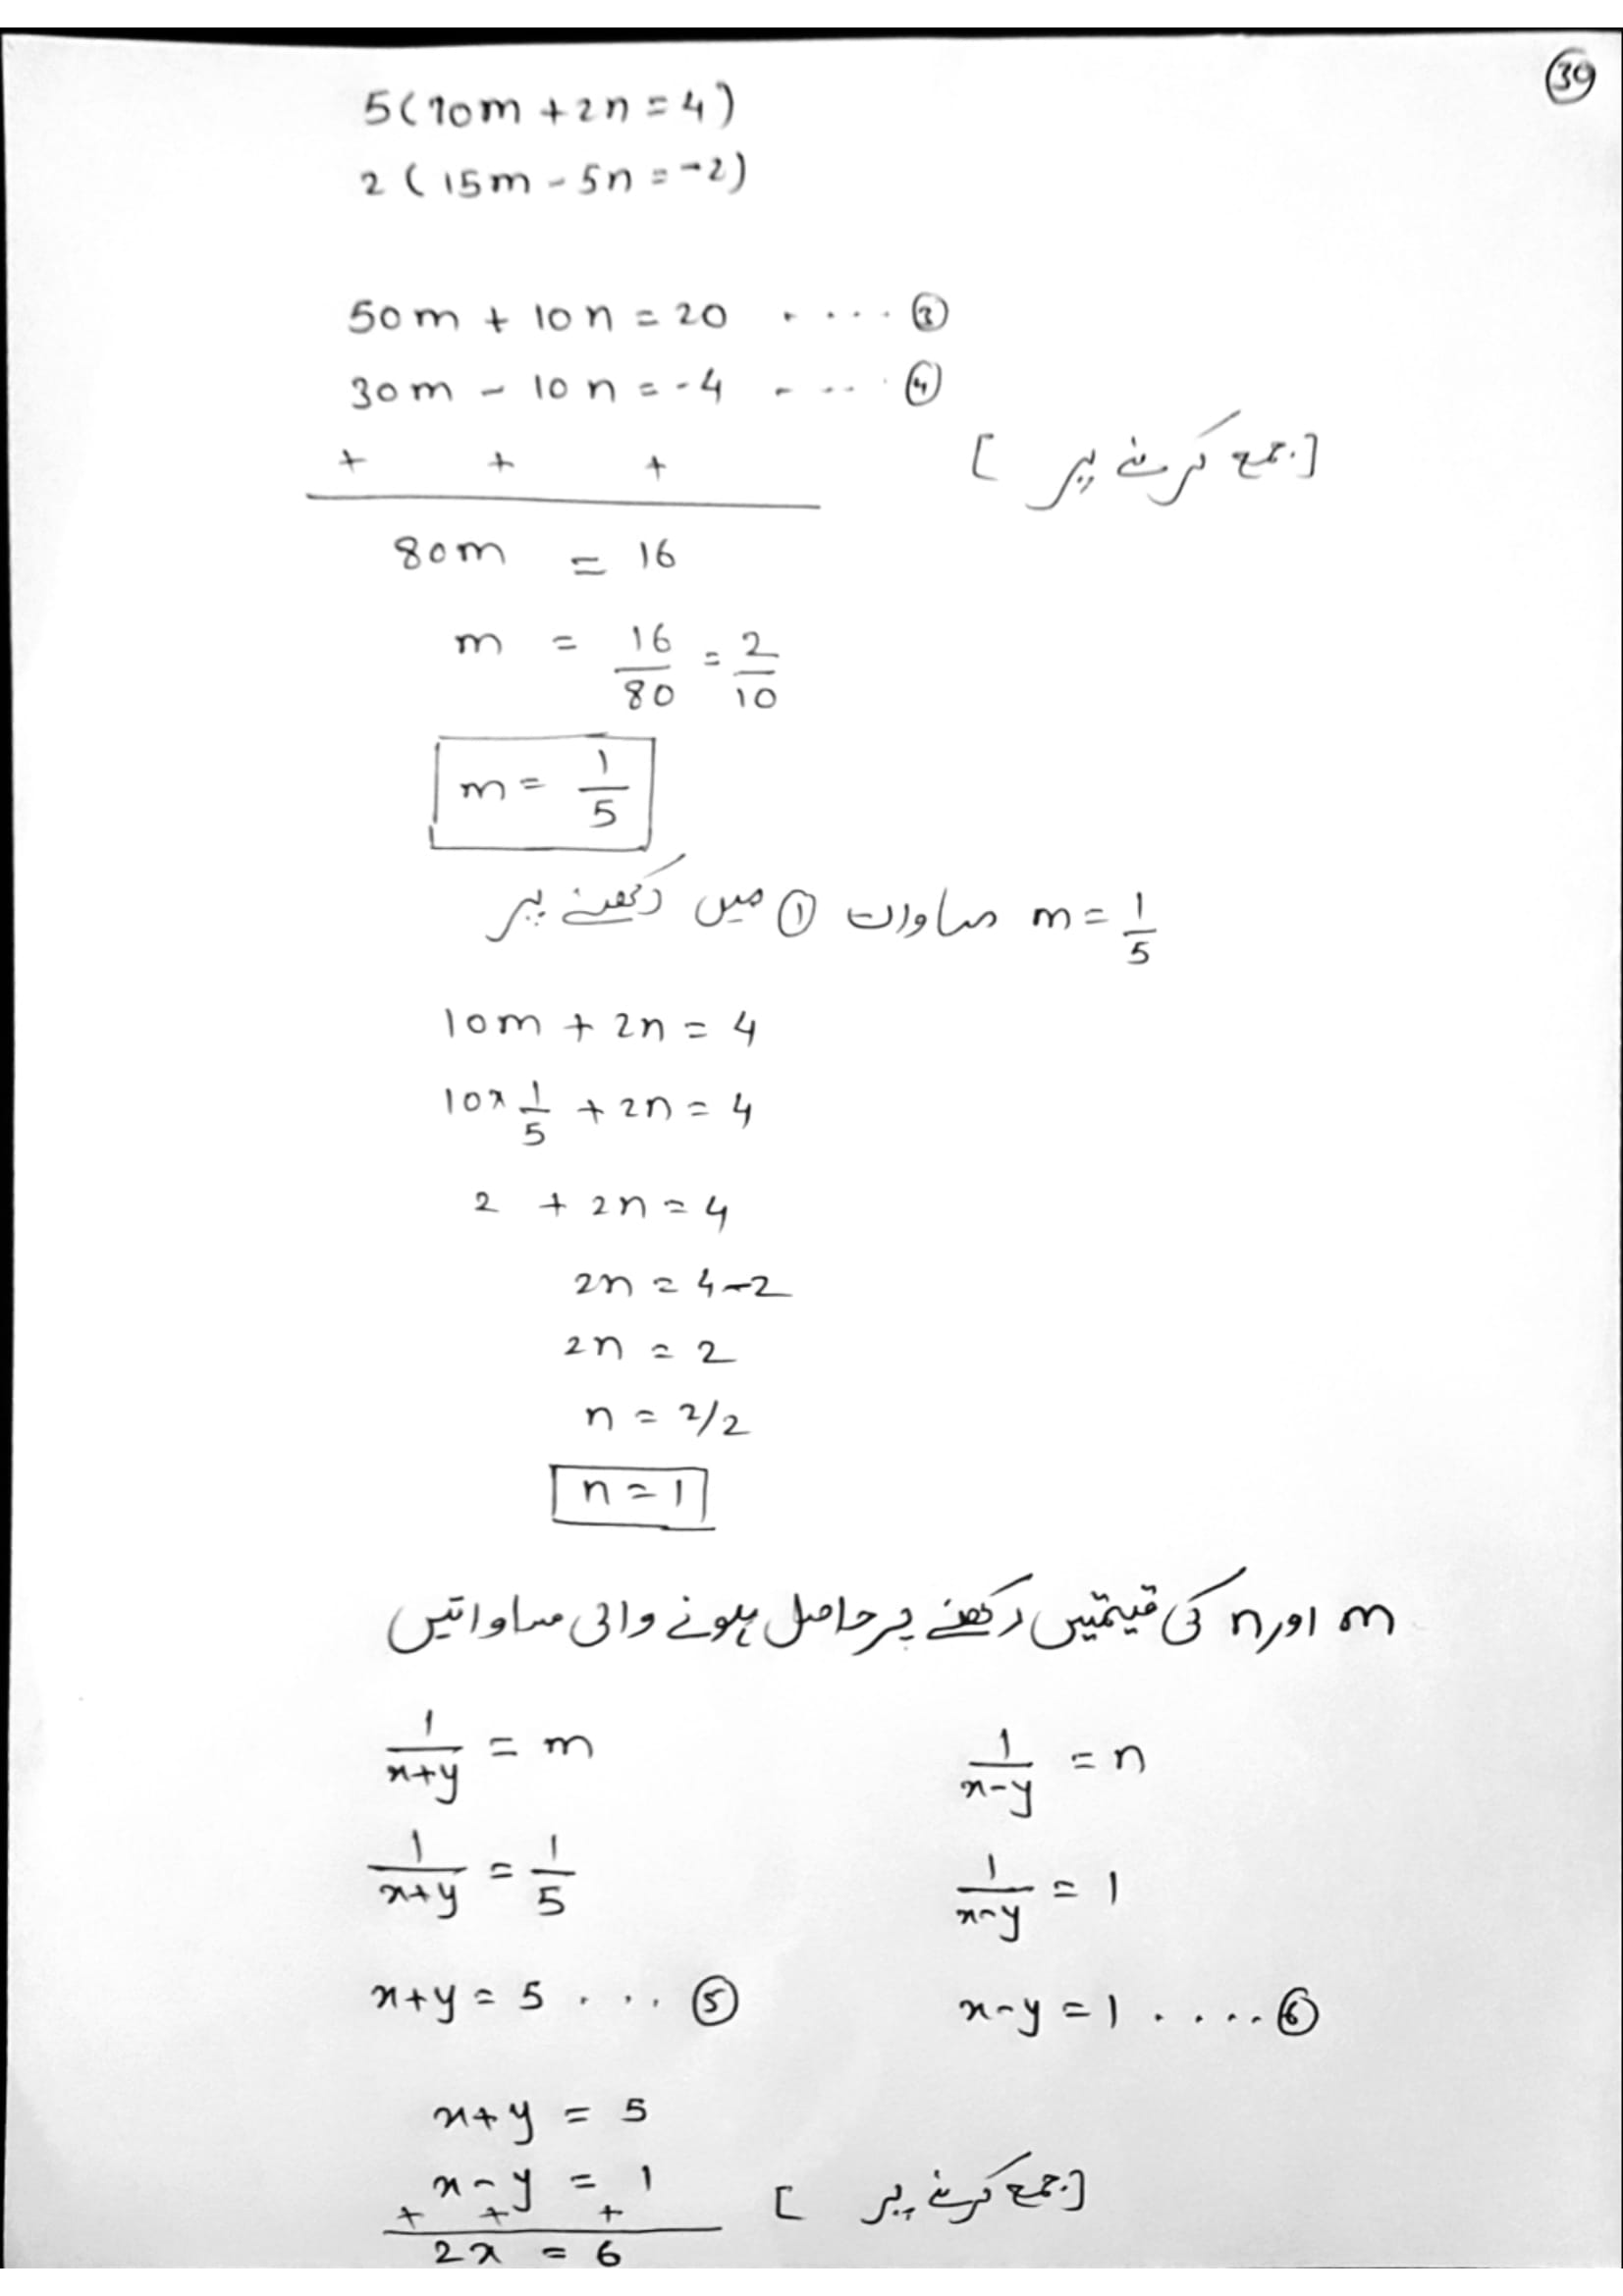 39
5(10m + 2n = 4)
2(15m - 5n = -2)
50m + 10n = 20 ..... ③
30m - 10n = -4 ..... ④
+ + + [جمع کرنے پر]
80m = 16
m = 16/80 = 2/10
m = 1/5
m = 1/5 مساوات ① میں رکھنے پر
10m + 2n = 4
10 × 1/5 + 2n = 4
2 + 2n = 4
2n = 4-2
2n = 2
n = 2/2
n = 1
m اور n کی قیمتیں رکھنے پر حاصل ہونے والی مساواتیں
1/(x+y) = m 1/(x-y) = n
1/(x+y) = 1/5 1/(x-y) = 1
x+y = 5 .... ⑤ x-y = 1 ..... ⑥
x+y = 5
x-y = 1 [جمع کرنے پر]
+ + +
2x = 6